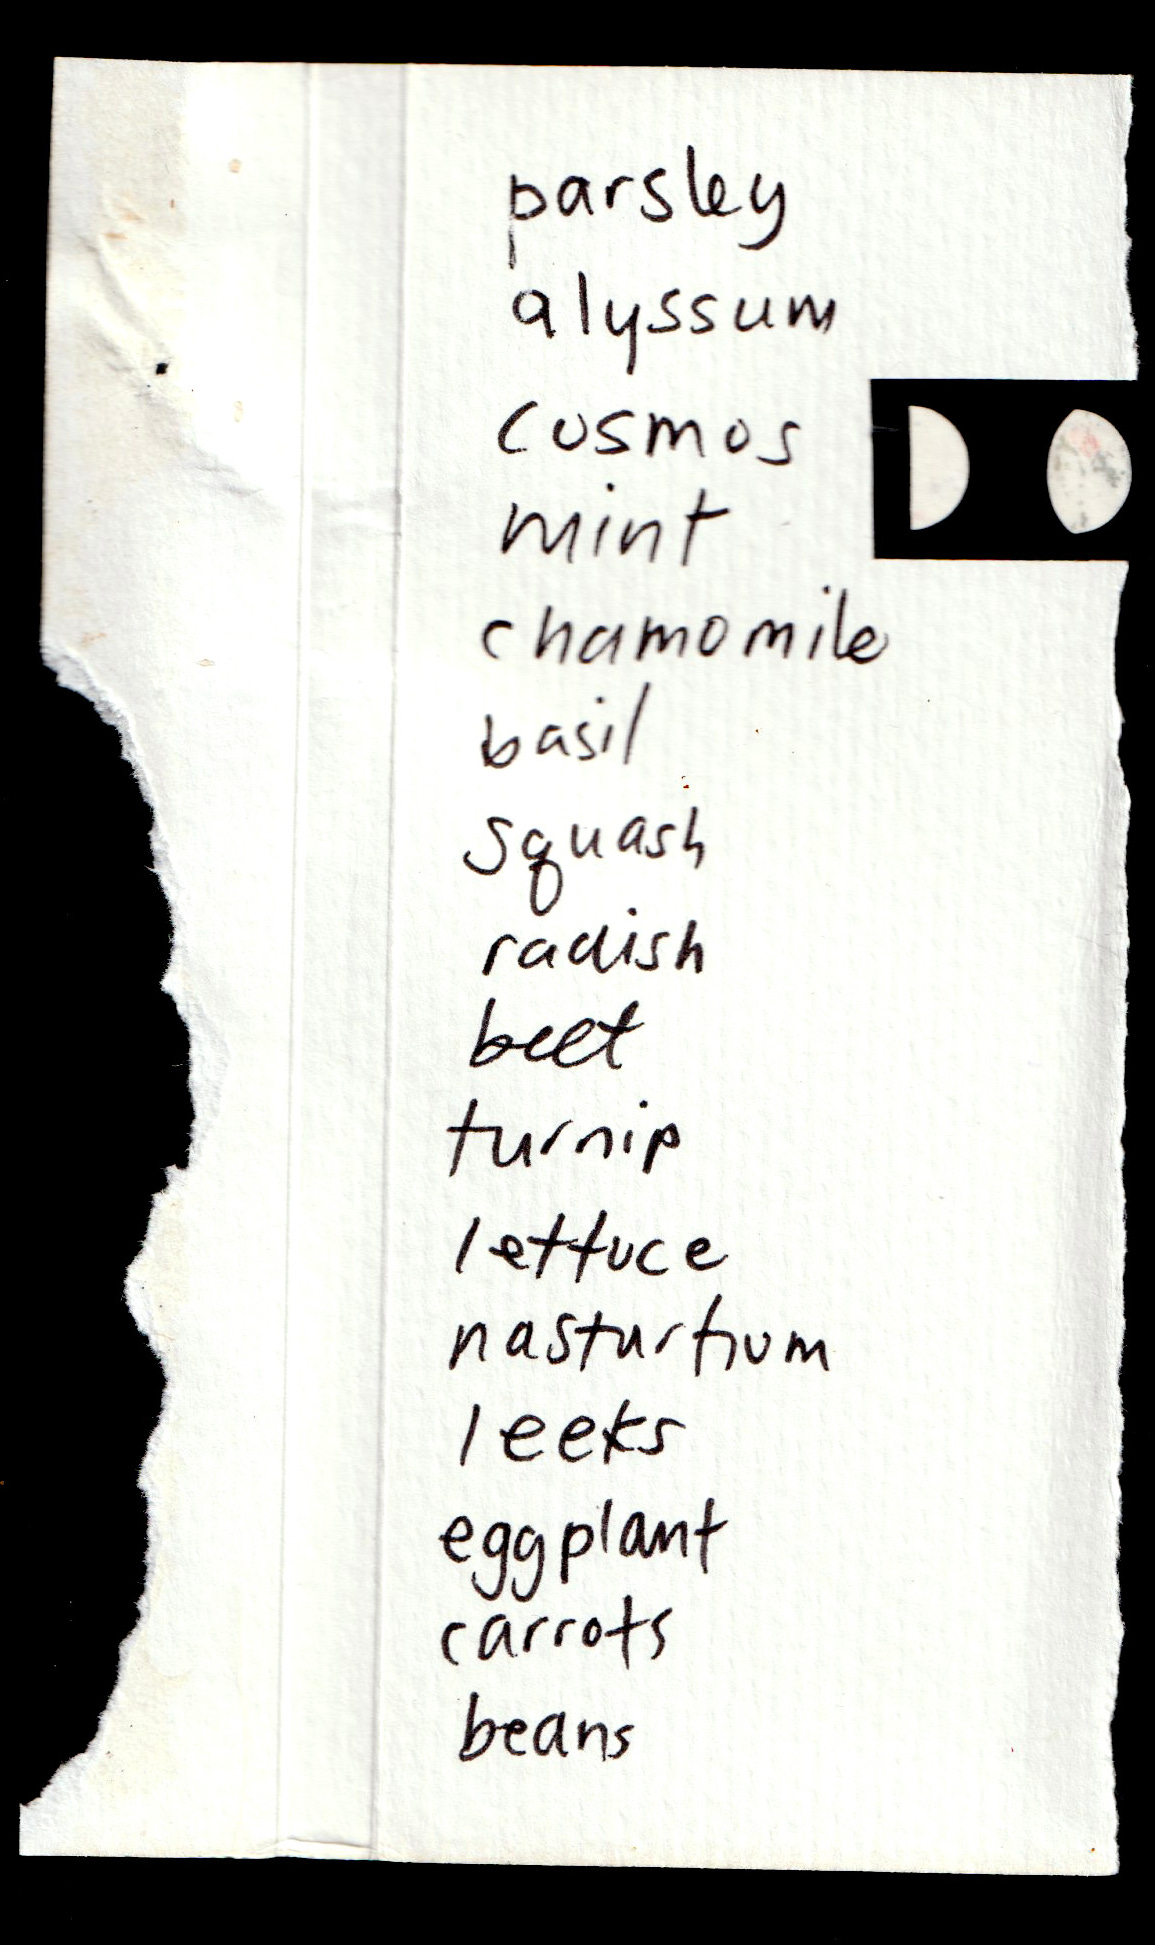 parsley
alyssum
cosmos
mint
chamomile
basil
squash
radish
beet
turnip
lettuce
nasturtium
leeks
eggplant
carrots
beans